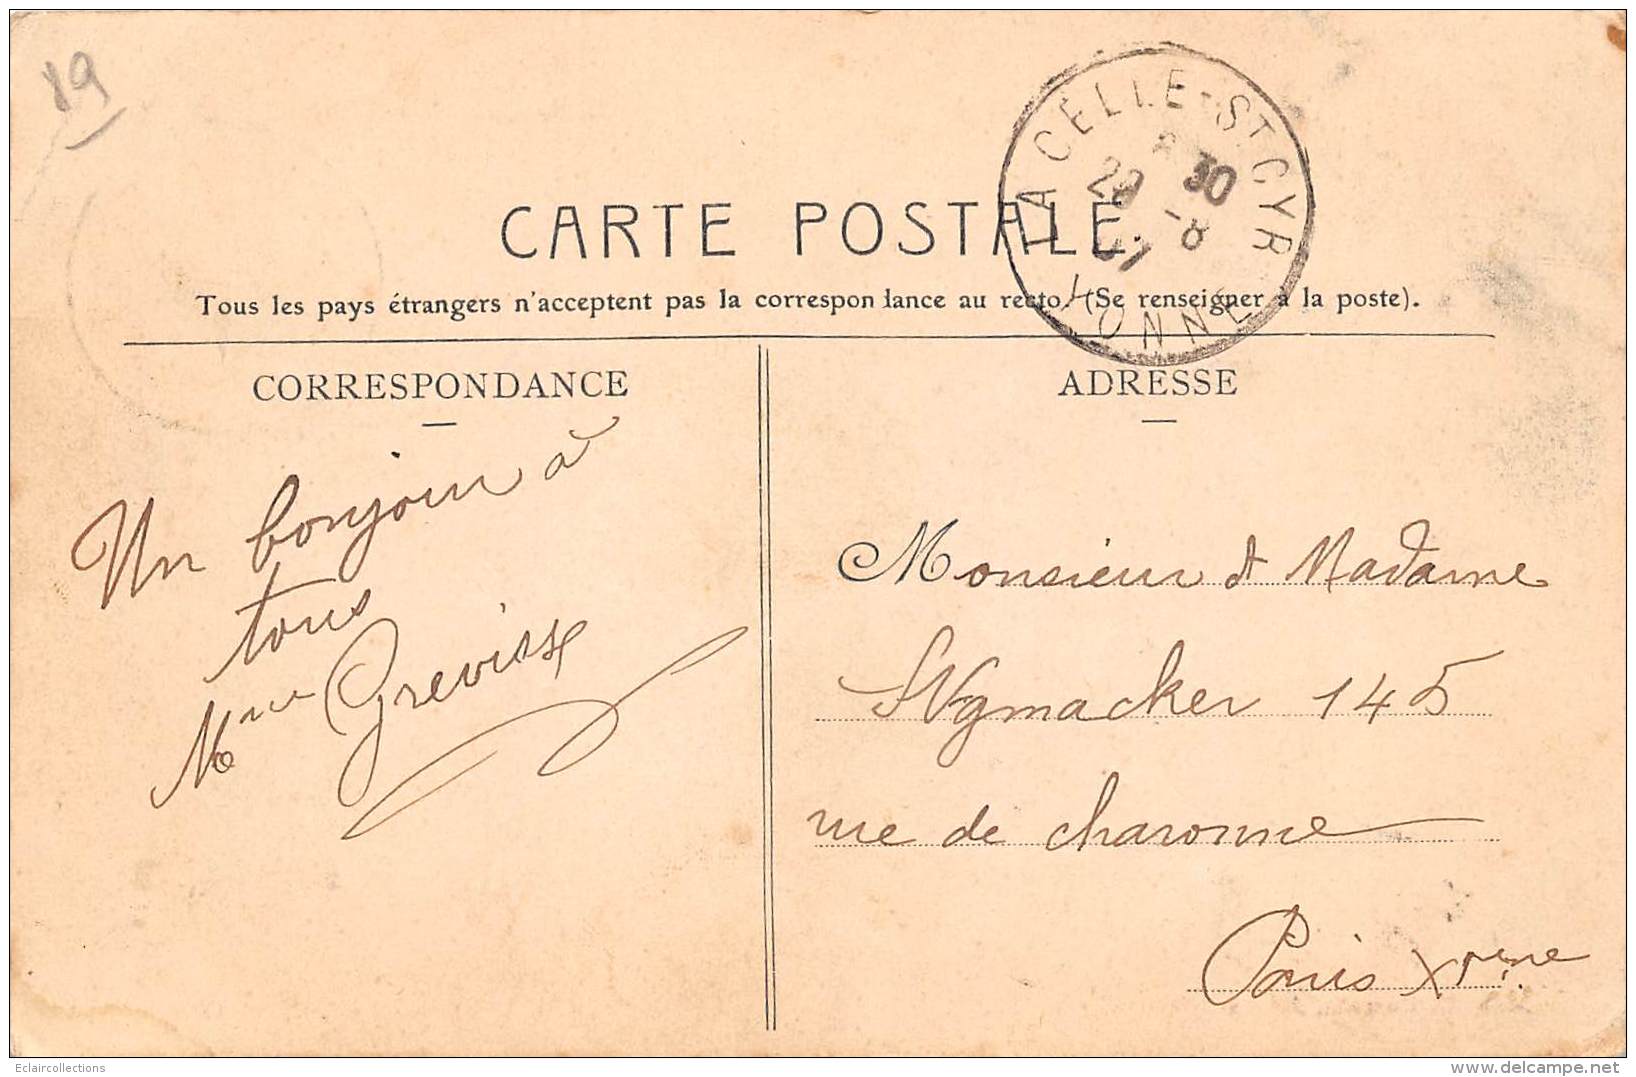 89
LA CELLE-ST CYR
8 30
28 -8
07
YONNE
CARTE POSTALE.
Tous les pays étrangers n'acceptent pas la correspondance au recto. (Se renseigner à la poste).
CORRESPONDANCE
Un bonjour à
tous
Mme Grevisse
ADRESSE
Monsieur et Madame
145
rue de charonne
Paris
Eclaircollections
delcampe.net